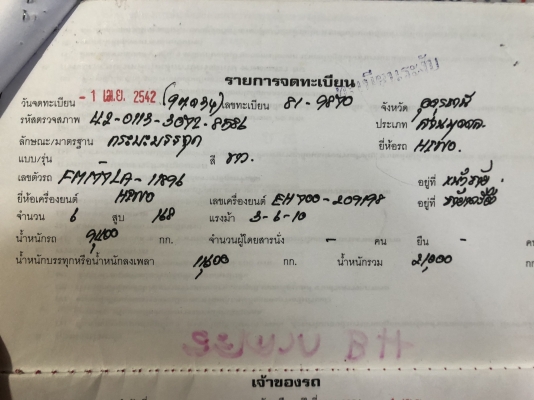 รายการจดทะเบียน
วันจดทะเบียน - 1 เม.ย. 2542 เลขทะเบียน 81-9870 จังหวัด อุดรธานี
รหัสตรวจสภาพ 42-0113-3072-8586 ประเภท ส่วนบุคคล
ลักษณะ/มาตรฐาน กระบะบรรทุก ยี่ห้อรถ HINO.
แบบ/รุ่น - สี ขาว.
เลขตัวรถ FM177LA-11896 อยู่ที่
ยี่ห้อเครื่องยนต์ HINO เลขเครื่องยนต์ EH700-209198 อยู่ที่
จำนวน 6 สูบ 168 แรงม้า 3-6-10
น้ำหนักรถ กก. จำนวนผู้โดยสารนั่ง - คน ยืน - ค
น้ำหนักบรรทุกหรือน้ำหนักลงเพลา กก. น้ำหนักรวม 21,000 กก
เจ้าของรถ